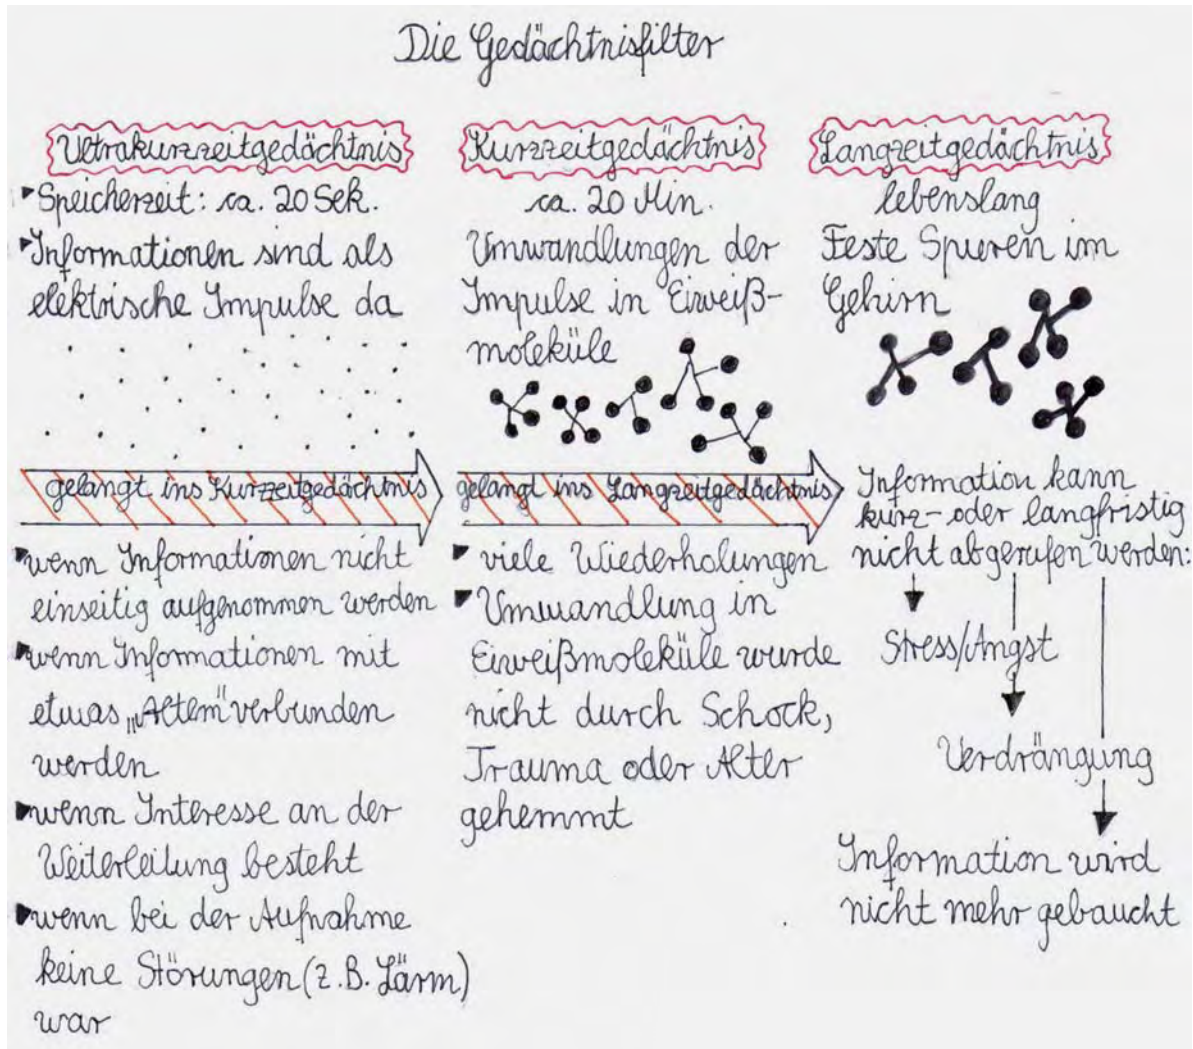 Die Gedächtnisfilter
Ultrakurzzeitgedächtnis
Speicherzeit: ca. 20 Sek.
Informationen sind als
elektrische Impulse da
gelangt ins Kurzzeitgedächtnis
wenn Informationen nicht
einseitig aufgenommen werden
wenn Informationen mit
etwas „Altem“ verbunden
werden
wenn Interesse an der
Weiterleitung besteht
wenn bei der Aufnahme
keine Störungen (z.B. Lärm)
war
Kurzzeitgedächtnis
ca. 20 Min.
Umwandlungen der
Impulse in Eiweiß-
moleküle
gelangt ins Langzeitgedächtnis
viele Wiederholungen
Umwandlung in
Eiweißmoleküle wurde
nicht durch Schock,
Trauma oder Alter
gehemmt
Langzeitgedächtnis
lebenslang
Feste Spuren im
Gehirn
Information kann
kurz- oder langfristig
nicht abgerufen werden:
Stress/Angst
Verdrängung
Information wird
nicht mehr gebaucht